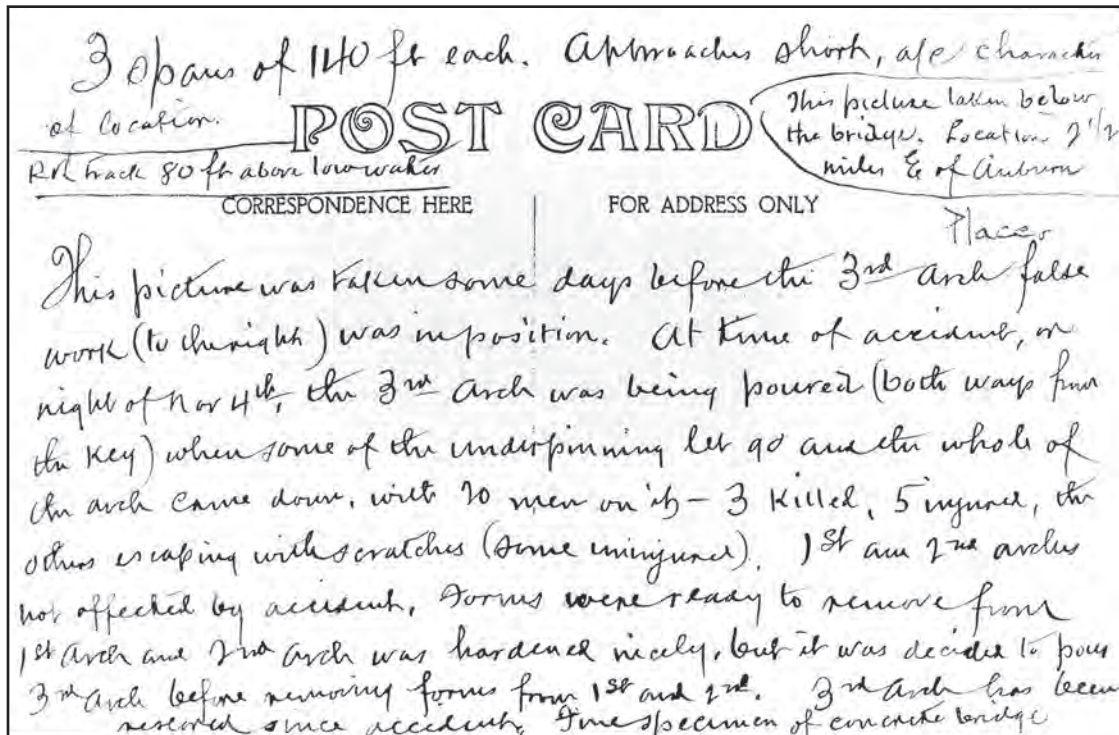 3 spans of 140 ft each. Approaches short, a/c character
of location.
RR track 80 ft above low water
POST CARD
This picture taken below
the bridge. Location 2 1/2
miles E of Auburn
Placer
CORRESPONDENCE HERE
FOR ADDRESS ONLY
This picture was taken some days before the 3rd arch false
work (to the right) was in position. At time of accident, on
night of Nov 4th, the 3rd arch was being poured (both ways from
the key) when some of the underpinning let go and the whole of
the arch came down, with 20 men on it - 3 killed, 5 injured, the
others escaping with scratches (some uninjured). 1st and 2nd arches
not affected by accident. Forms were ready to remove from
1st arch and 2nd arch was hardened nicely, but it was decided to pour
3rd arch before removing forms from 1st and 2nd. 3rd arch has been
restored since accident. Fine specimen of concrete bridge